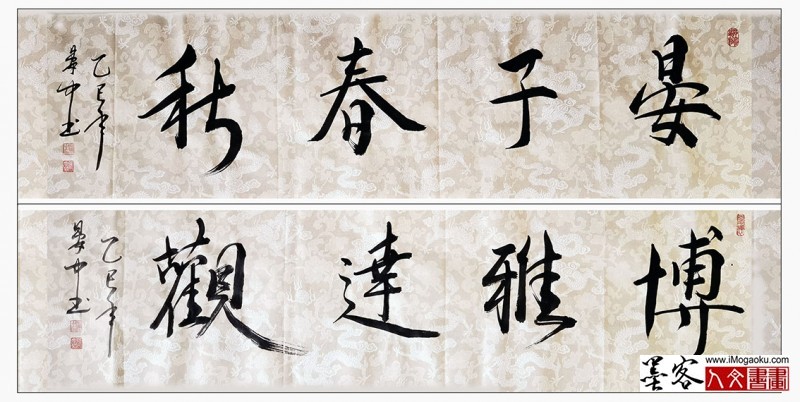 晏子春秋
乙巳年
中书
博雅達觀
乙巳年
中书
墨客
www.iMogaoku.com
人文書畫